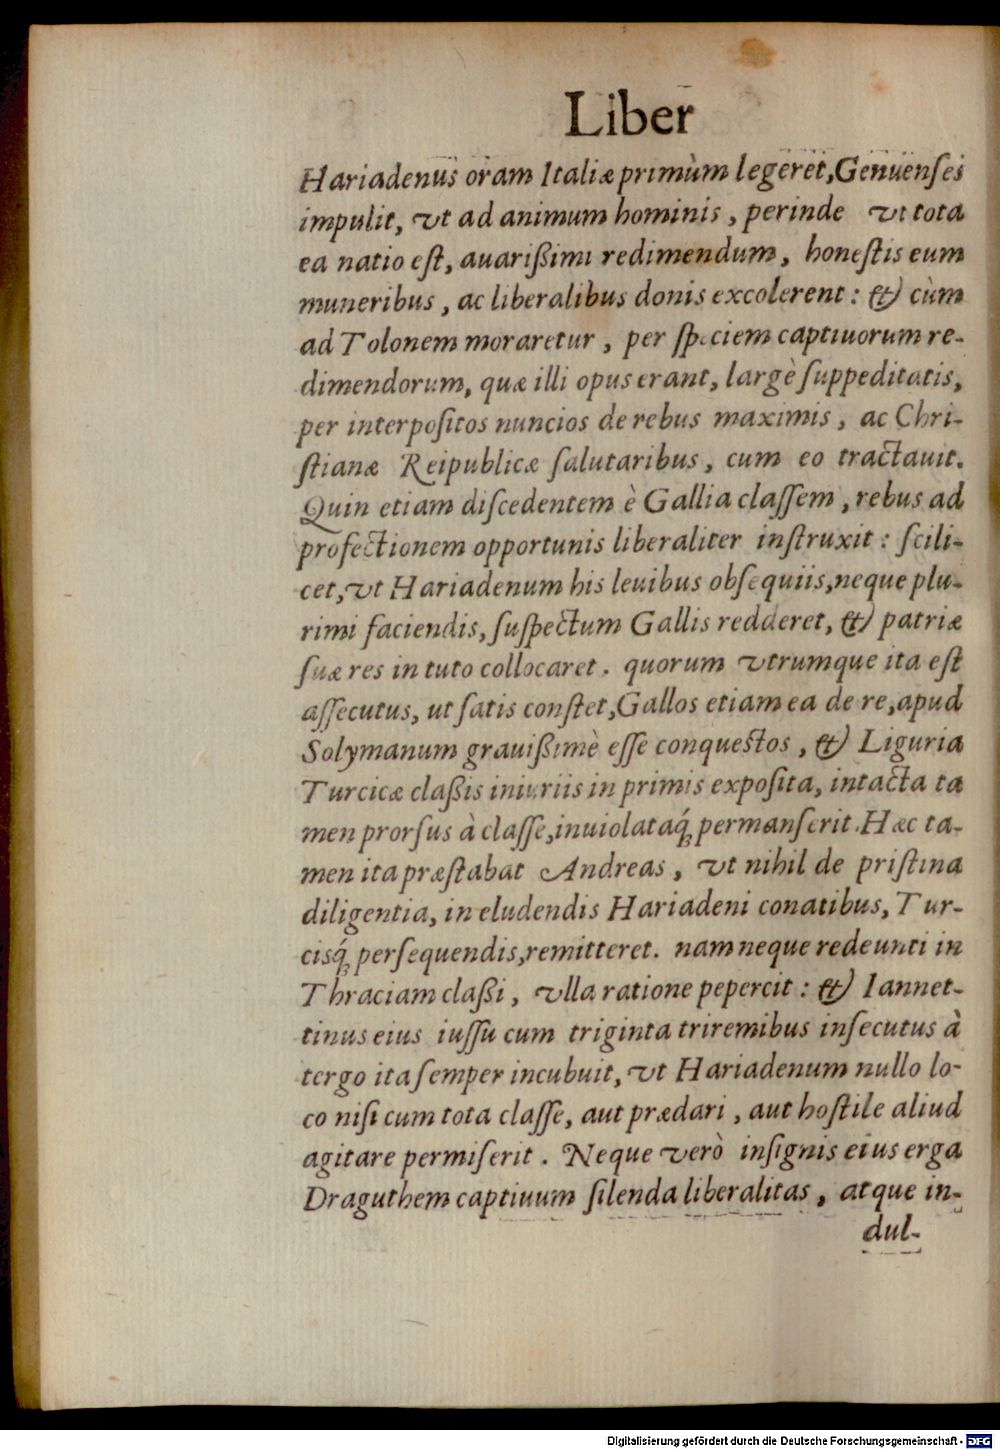 Liber
Hariadenus oram Italiæ primùm legeret, Genuenſes
impulit, vt ad animum hominis, perinde vt tota
ea natio eſt, auarißimi redimendum, honeſtis eum
muneribus, ac liberalibus donis excolerent: & cùm
ad Tolonem moraretur, per ſpeciem captiuorum re-
dimendorum, quæ illi opus erant, largè ſuppeditatis,
per interpoſitos nuncios de rebus maximis, ac Chri-
ſtianæ Reipublicæ ſalutaribus, cum eo tractauit.
Quin etiam diſcedentem è Gallia claſſem, rebus ad
profectionem opportunis liberaliter inſtruxit: ſcili-
cet, vt Hariadenum his leuibus obſequiis, neque plu-
rimi faciendis, ſuſpectum Gallis redderet, & patriæ
ſuæ res in tuto collocaret. quorum vtrumque ita eſt
aſſecutus, ut ſatis conſtet, Gallos etiam ea de re, apud
Solymanum grauißimè eſſe conqueſtos, & Liguria
Turcicæ claßis iniuriis in primis expoſita, intacta ta
men prorſus à claſſe, inuiolataq́; permanſerit. Hæc ta-
men ita præſtabat Andreas, vt nihil de priſtina
diligentia, in eludendis Hariadeni conatibus, Tur-
cisq́; perſequendis, remitteret. nam neque redeunti in
Thraciam claßi, vlla ratione pepercit: & Iannet-
tinus eius iuſſu cum triginta triremibus inſecutus à
tergo ita ſemper incubuit, vt Hariadenum nullo lo-
co niſi cum tota claſſe, aut prædari, aut hoſtile aliud
agitare permiſerit. Neque verò inſignis eius erga
Draguthem captiuum ſilenda liberalitas, atque in-
dul-
Digitalisierung gefördert durch die Deutsche Forschungsgemeinschaft - DFG